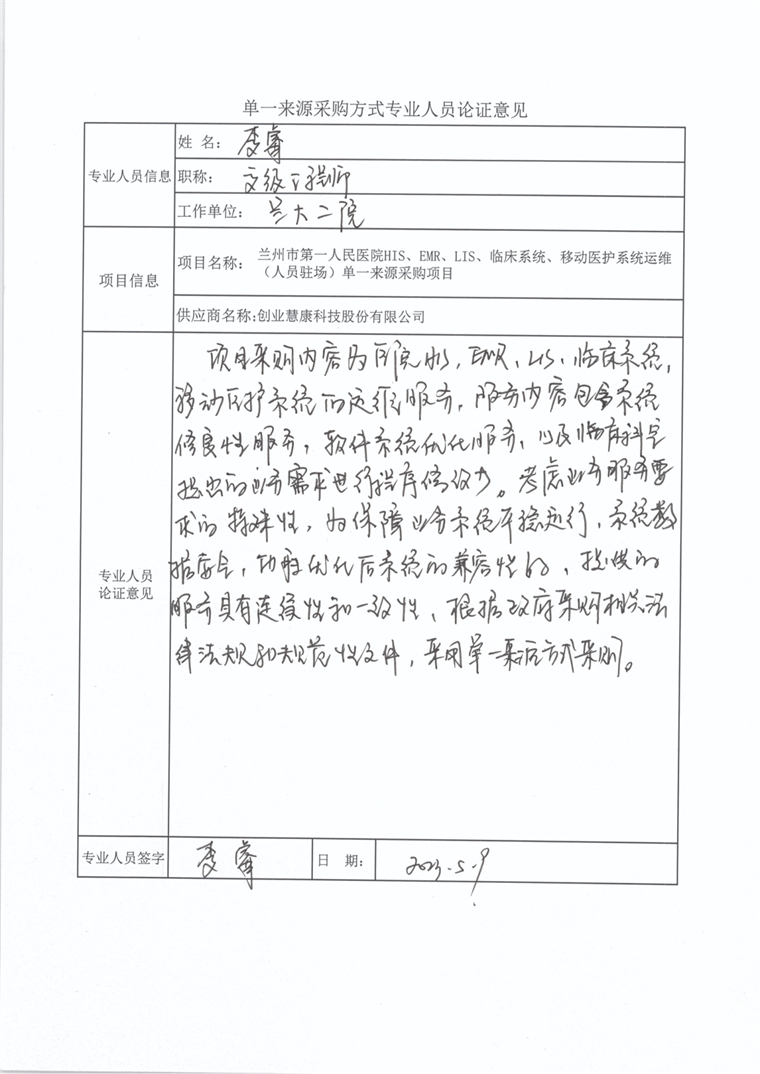 单一来源采购方式专业人员论证意见
专业人员信息
姓 名：李睿
职称：高级工程师
工作单位：兰大二院
项目信息
项目名称：兰州市第一人民医院HIS、EMR、LIS、临床系统、移动医护系统运维
（人员驻场）单一来源采购项目
供应商名称：创业慧康科技股份有限公司
专业人员
论证意见
项目采购内容为医院HIS，EMR、LIS、临床系统，
移动医护系统的运维服务，服务内容包含系统
性服务，软件系统优化服务，以及临床科室
提出的业务需求进行程序修改等。考虑业务服务要
求的特殊性，为保障业务系统平稳运行，系统数
据安全，功能优化后系统的兼容性的，提供的
服务具有连续性和一致性、根据政府采购相关法
律法规和规范性文件，采用单一来源方式采购。
专业人员签字
李睿
日 期：
2023.5.9